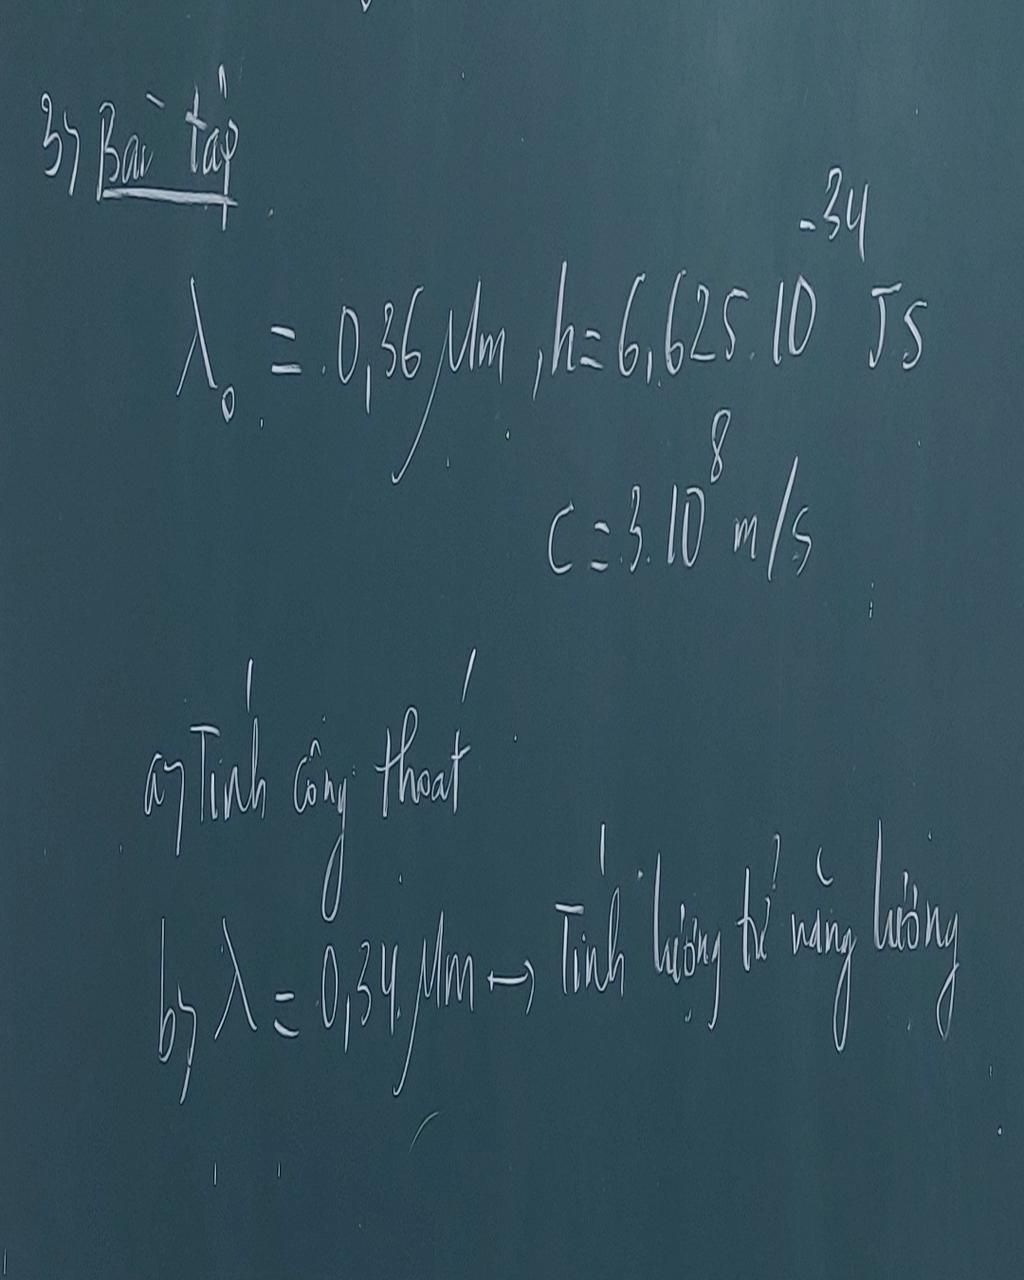 3) Bài tập
λ₀ = 0,36 μm, h = 6,625.10⁻³⁴ Js
c = 3.10⁸ m/s
a) Tính công thoát
b) λ = 0,34 μm → Tính lượng tử năng lượng